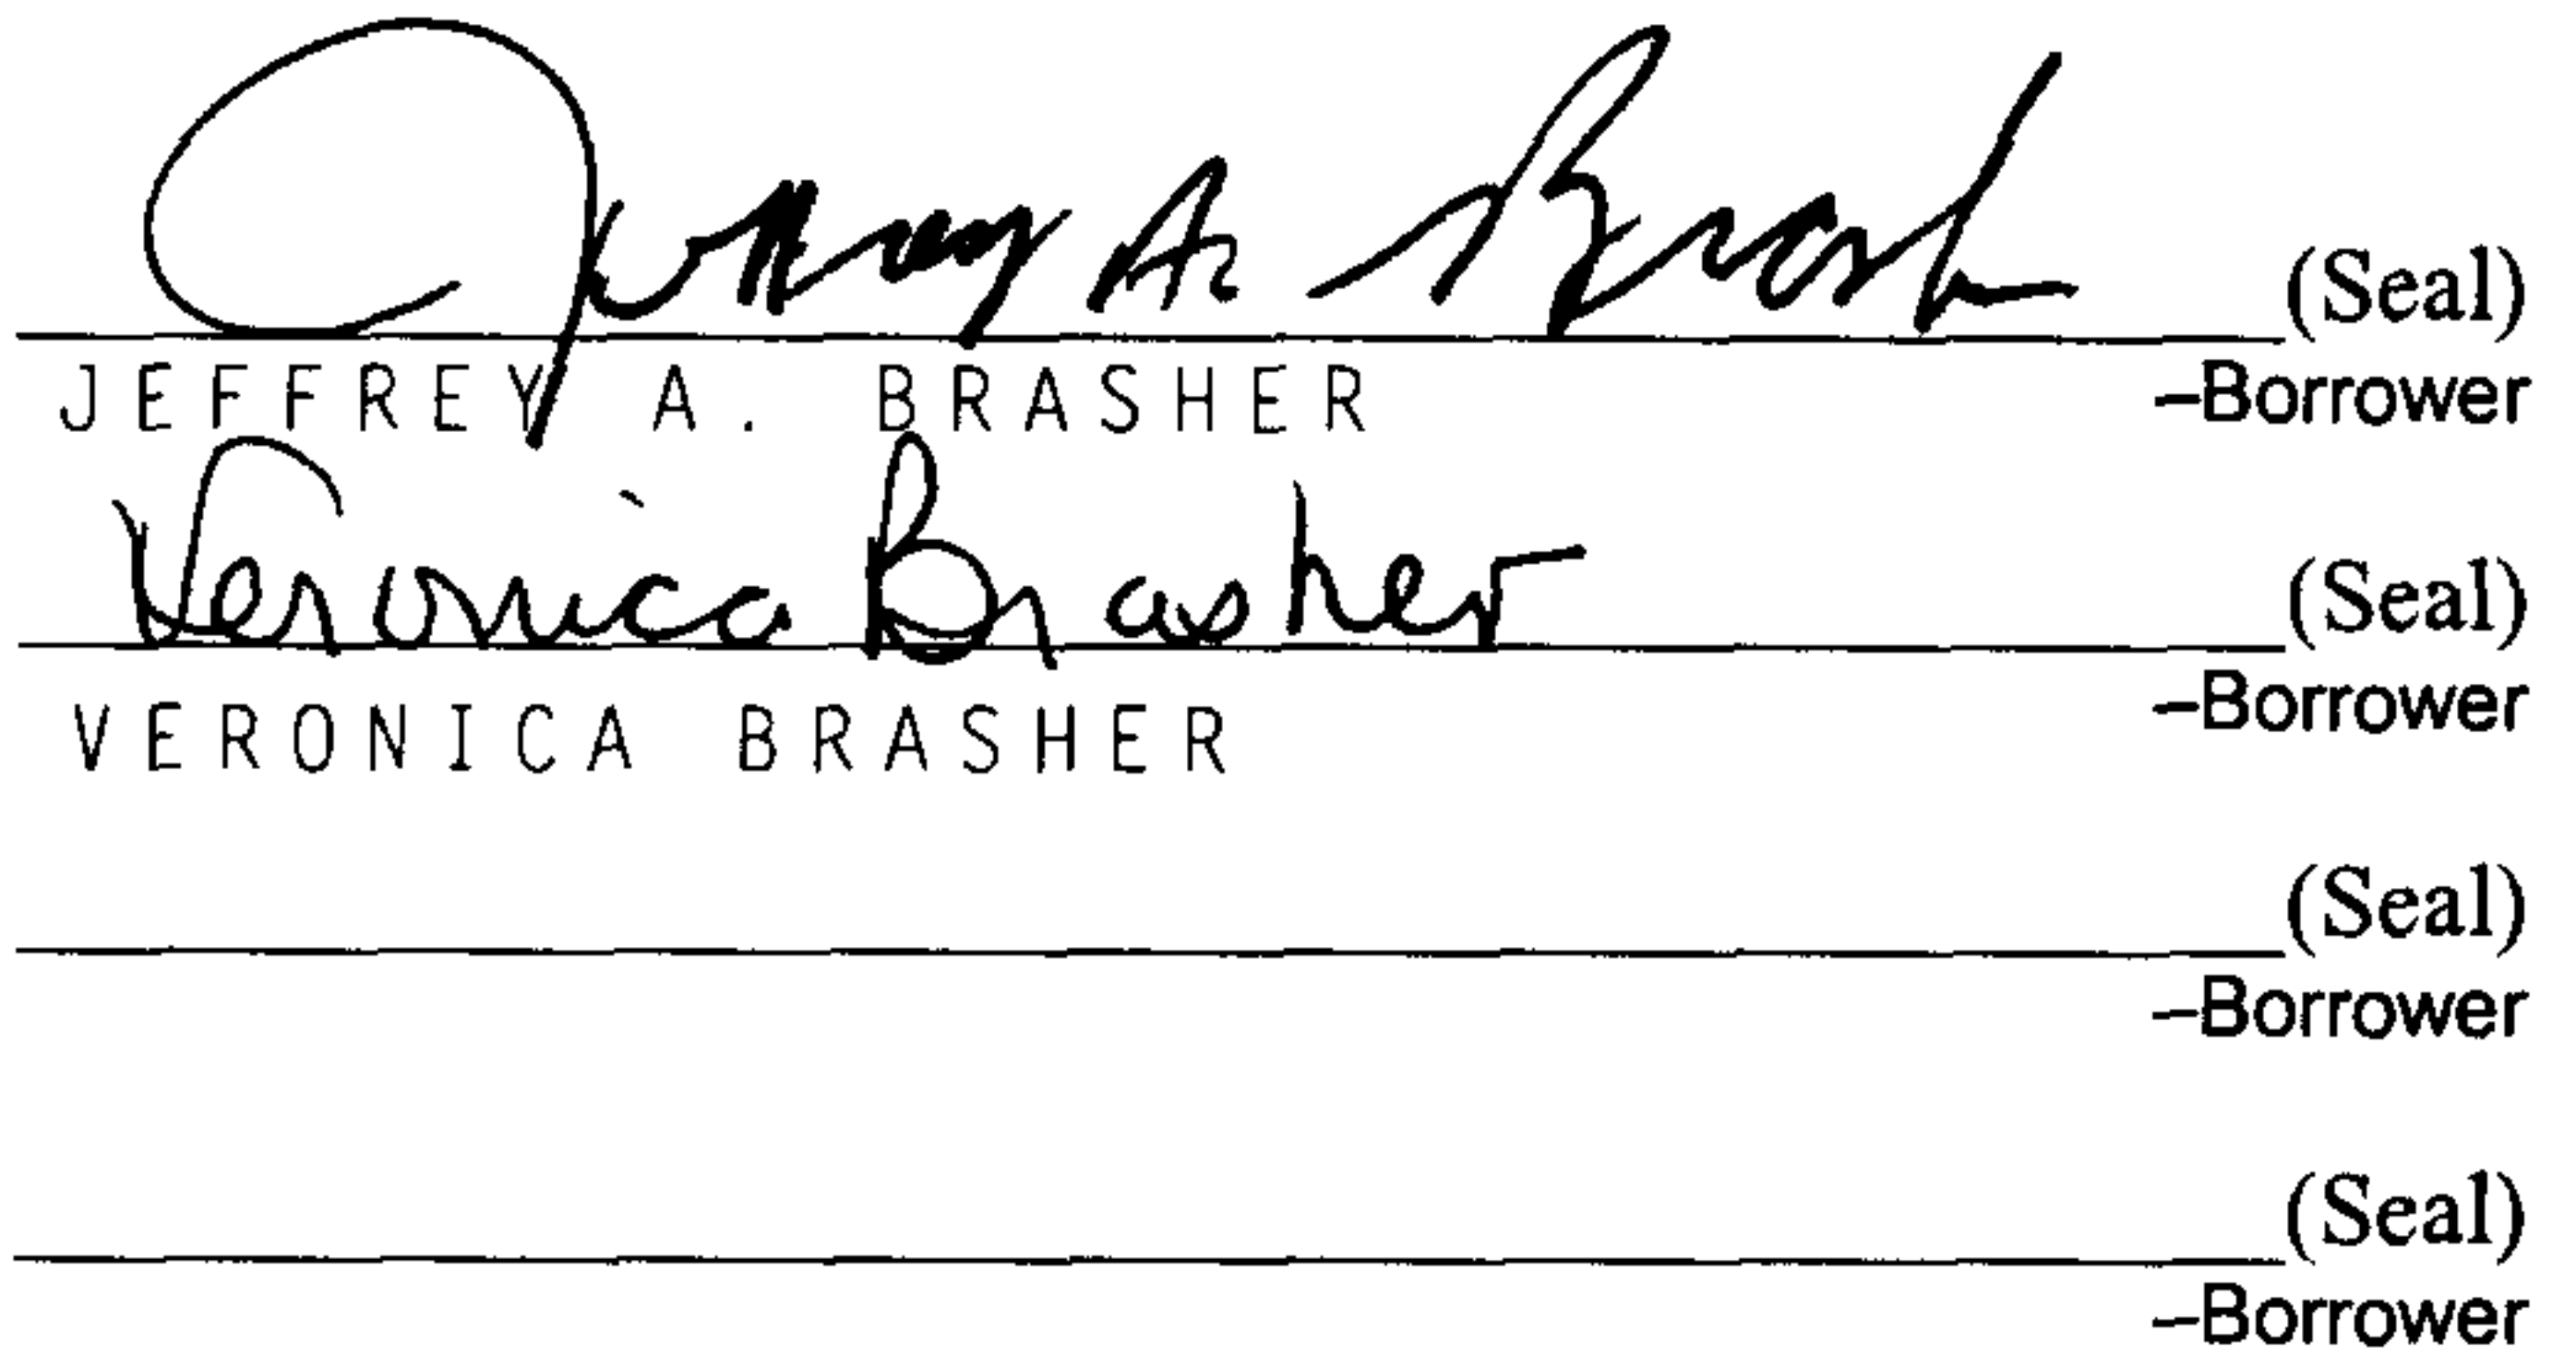 Jeffrey A. Brasher (Seal)
JEFFREY A. BRASHER –Borrower
Veronica Brasher (Seal)
VERONICA BRASHER –Borrower
(Seal)
–Borrower
(Seal)
–Borrower